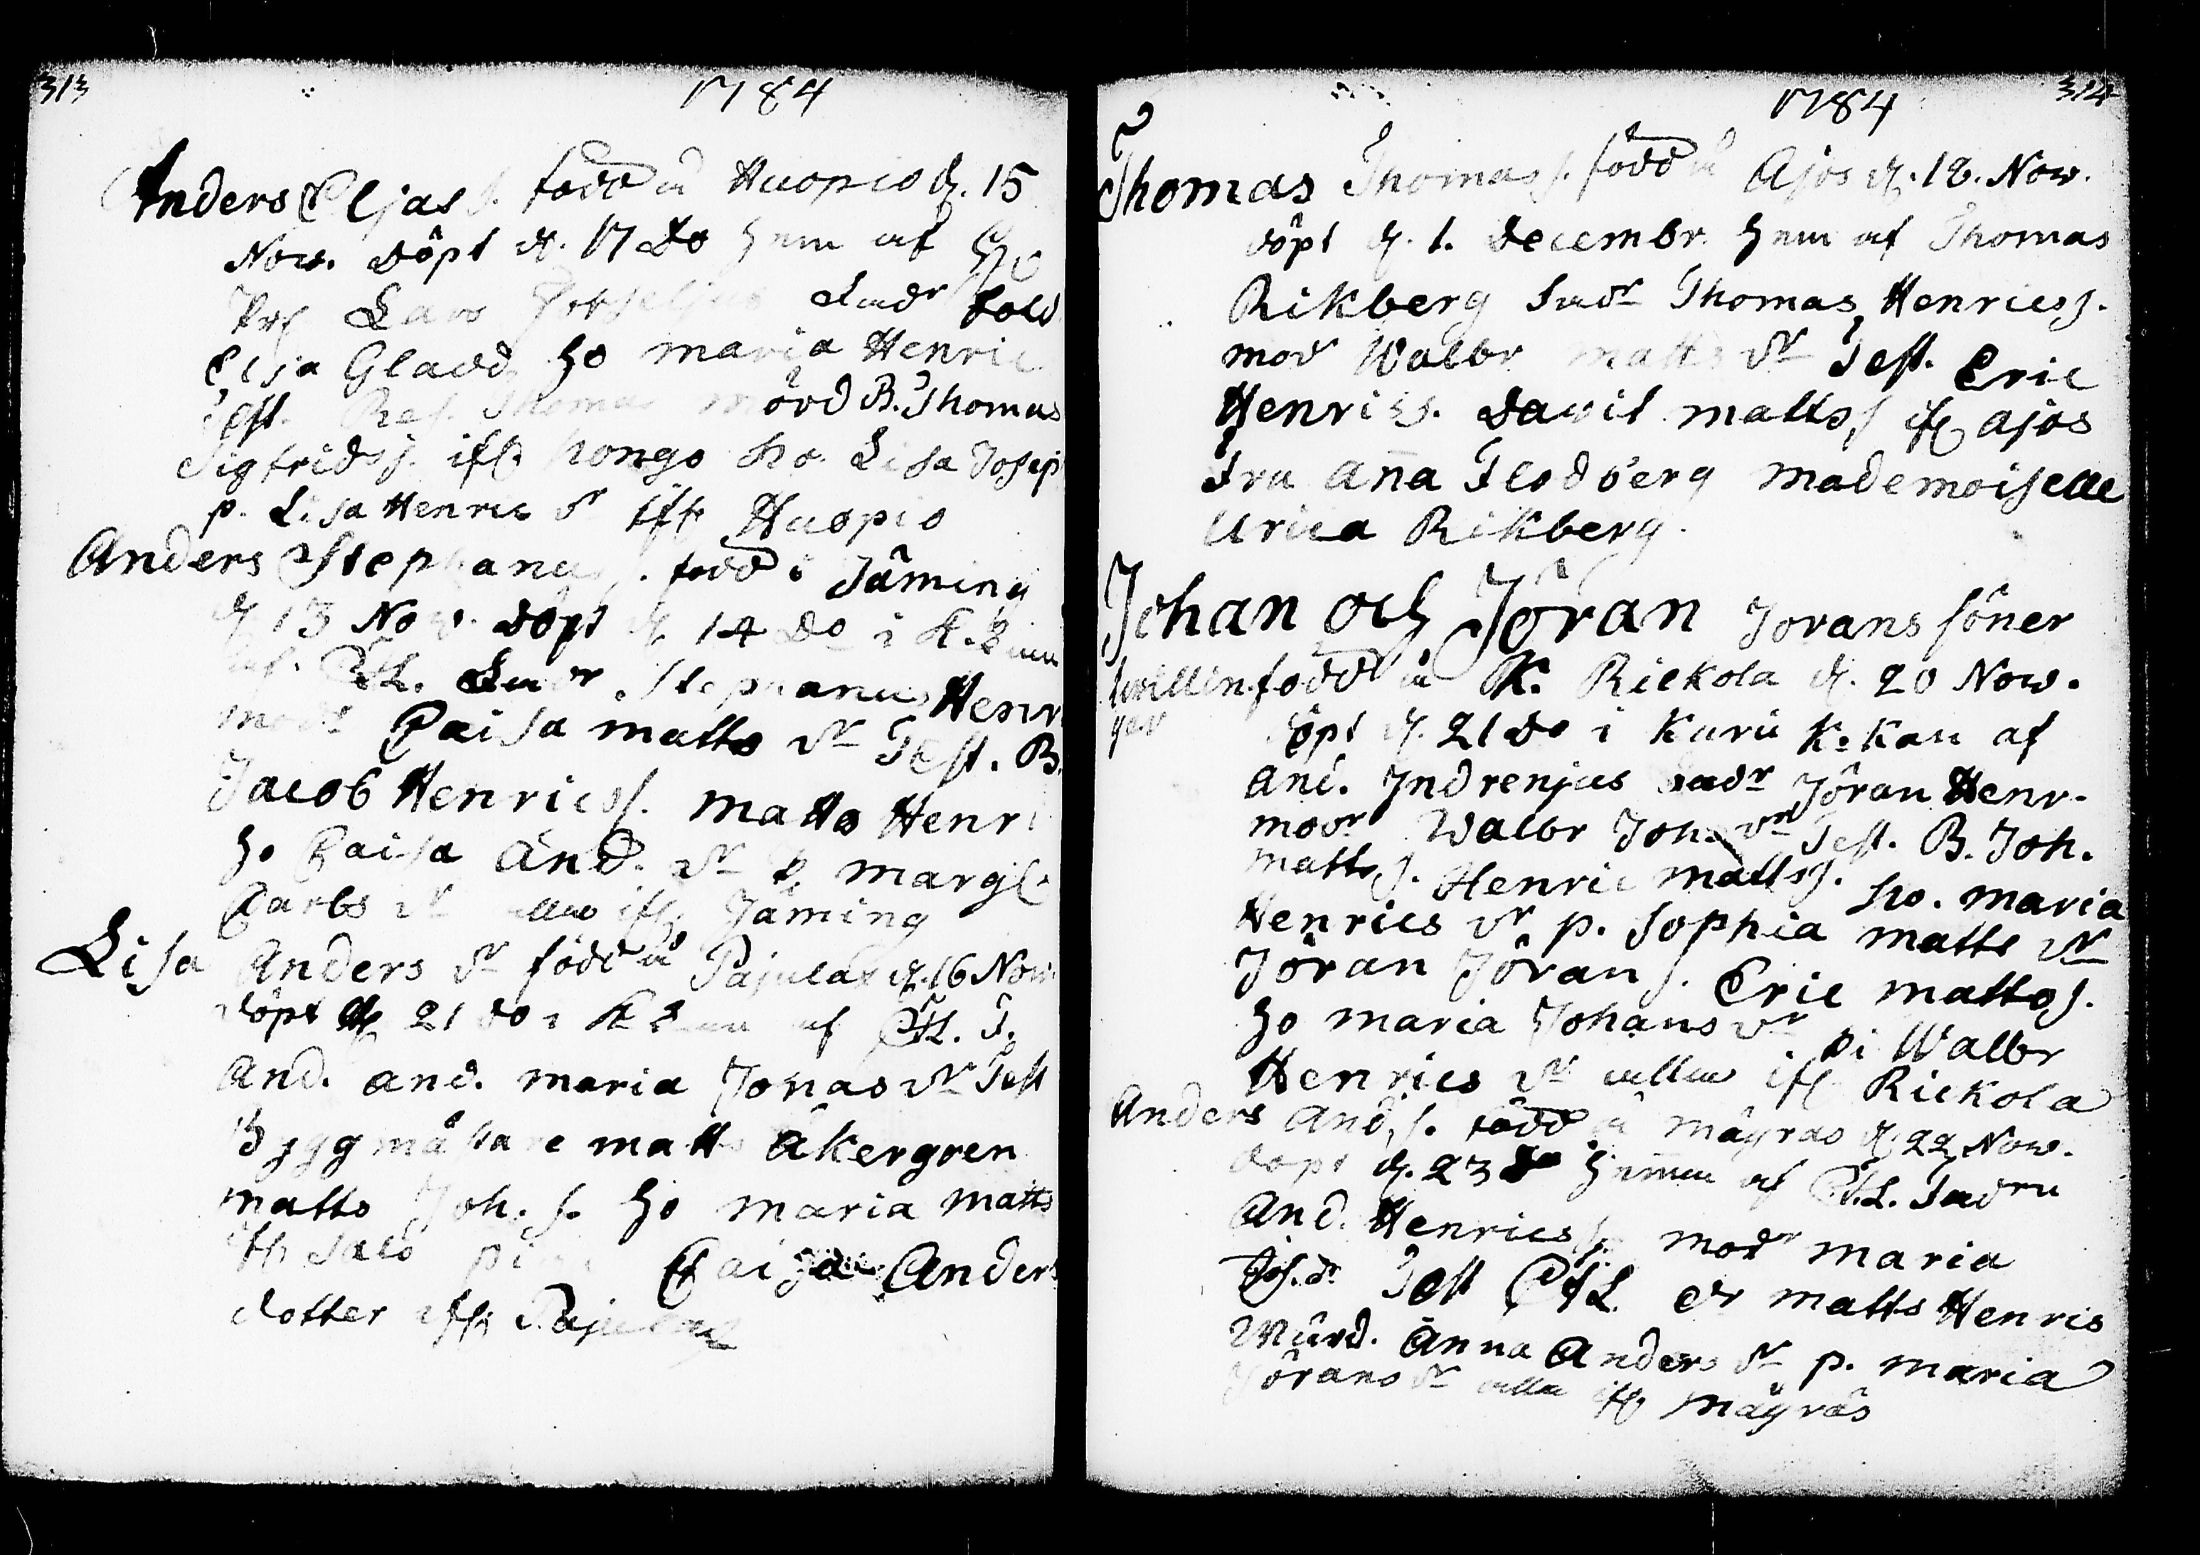 313
1784
Anders Eljas s. född å Huopio d. 15
Now. döpt d. 17 do hem af
Lars fadr Sold
Elja Gladd ho maria Henric
Test. Thomas B. Thomas
Sigfrids s. ifr. hongo ho. Lisa Josep
p. Lisa Henrics dr ifr Huopio
Anders Stephanus s. född i Jäming
d 13 Now. döpt d 14 do i
af fadr Stephanus Henr
modr Caisa matts dr Test. B.
Jacob Henrics s. matts Henri
ho Caisa And. dr p margt
dr allas ifr Jäming
Lisa Anders dr född å Pajulax d. 16 Now
döpt d 21 do i af
And. and. maria Jonas dr Test
Byggmästare matts åkergren
matts Joh. s. ho maria matts
ifr Salo piga Caisa Anders
dotter ifr Pajulax
1784
314
Thomas Thomas s. född å Ajos d. 18. Now.
döpt d. 1. decembr hem af Thomas
Rikberg fadr Thomas Henrics s.
modr Walbr matts dr Test. Eric
Henrics s. david matts s ifr ajos
fru aña Flodberg mademoiselle
Ulrica Rikberg.
Johan och Jöran Jorans söner
twillin född å K. Riekola d. 20 Now.
ger döpt d. 21 do i Kuru K: Kan af
and. Indrenjus fadr Jöran Henr.
modr Walbr Joh. dr Test. B. Joh.
matts s. Henric matts s. ho. maria
Henrics dr p. Sophia matts dr
Jöran Jöran s. Eric matts s.
ho maria Johans dr pi Walbr
Henrics dr allas ifr Riekola
Anders And. s. född å mäyräs d. 22 Now.
döpt d. 23 do hemma af fadren
And. Henrics s. modr maria
dr Test matts Henrics
Anna Anders dr p. maria
Jörans dr alla ifr mäyräs